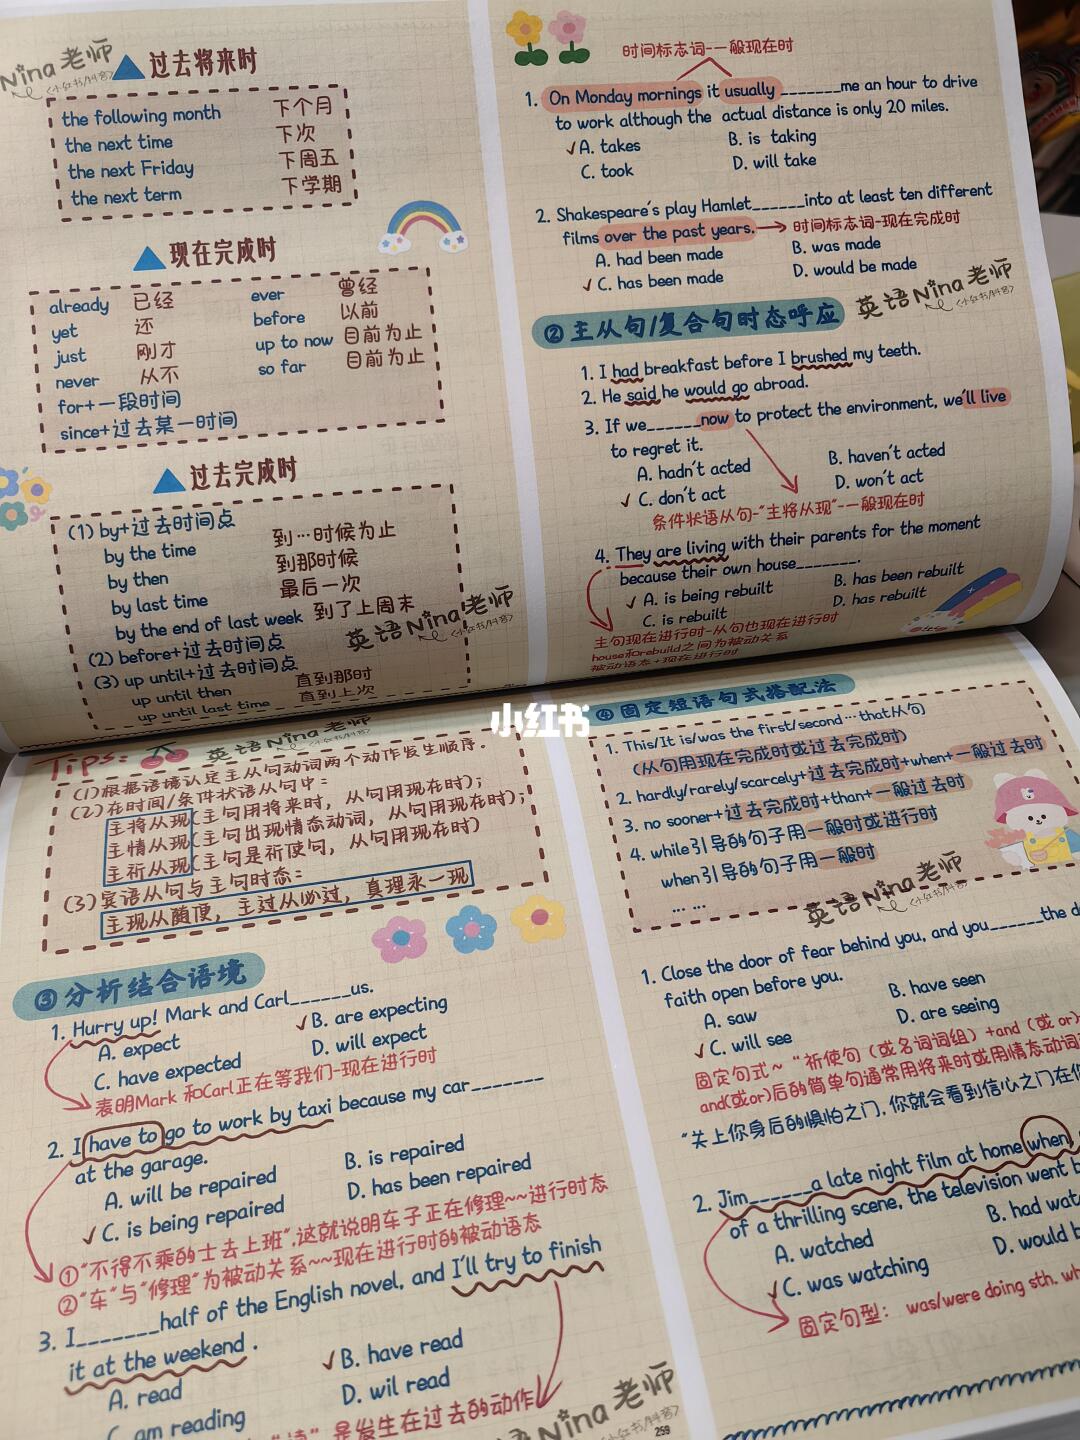 Nina老师
过去将来时
the following month 下个月
the next time 下次
the next Friday 下周五
the next term 下学期
现在完成时
already 已经 ever 曾经
yet 还 before 以前
just 刚才 up to now 目前为止
never 从不 so far 目前为止
for+一段时间
since+过去某一时间
过去完成时
(1) by+过去时间点 到…时候为止
by the time 到那时候
by then 最后一次
by last time 到了上周末
by the end of last week
英语Nina老师
(2) before+过去时间点
(3) up until+过去时间点
up until then 直到那时
up until last time 直到上次
时间标志词-一般现在时
1. On Monday mornings it usually_______me an hour to drive
to work although the actual distance is only 20 miles.
✓A. takes B. is taking
C. took D. will take
2. Shakespeare's play Hamlet______into at least ten different
films over the past years. 时间标志词-现在完成时
A. had been made B. was made
✓C. has been made D. would be made
英语Nina老师
<小红书/抖音>
②主从句/复合句时态呼应
1. I had breakfast before I brushed my teeth.
2. He said he would go abroad.
3. If we______now to protect the environment, we'll live
to regret it.
A. hadn't acted B. haven't acted
✓C. don't act D. won't act
条件状语从句-"主将从现"-一般现在时
4. They are living with their parents for the moment
because their own house_______.
✓A. is being rebuilt B. has been rebuilt
C. is rebuilt D. has rebuilt
主句现在进行时-从句也现在进行时
house和rebuild之间为被动关系
被动语态+现在进行时
小红书
Tips: 英语Nina老师
(1)根据语境认定主从句动词两个动作发生顺序。
(2)在时间/条件状语从句中:
主将从现(主句用将来时，从句用现在时);
主情从现(主句出现情态动词，从句用现在时);
主祈从现(主句是祈使句，从句用现在时)
(3)宾语从句与主句时态:
主现从随便，主过从必过，真理永一现
③分析结合语境
1. Hurry up! Mark and Carl______us.
A. expect ✓B. are expecting
C. have expected D. will expect
表明Mark 和Carl正在等我们-现在进行时
2. I have to go to work by taxi because my car_______
at the garage.
A. will be repaired B. is repaired
✓C. is being repaired D. has been repaired
①"不得不乘的士去上班",这就说明车子正在修理~~进行时态
②"车"与"修理"为被动关系~~现在进行时的被动语态
3. I_______half of the English novel, and I'll try to finish
it at the weekend .
A. read ✓B. have read
C. am reading D. wil read
是发生在过去的动作
Nina老师
259
④固定短语句式搭配法
1. This/It is/was the first/second…that从句
(从句用现在完成时或过去完成时)
2. hardly/rarely/scarcely+过去完成时+when+一般过去时
3. no sooner+过去完成时+than+一般过去时
4. while引导的句子用一般时或进行时
when引导的句子用一般时
... ...
英语Nina老师
1. Close the door of fear behind you, and you______the d
faith open before you.
A. saw B. have seen
✓C. will see D. are seeing
固定句式~"祈使句（或名词词组）+and (或 or)
and(或or)后的简单句通常用将来时或用情态动词
"关上你身后的惧怕之门,你就会看到信心之门在你
2. Jim______a late night film at home when,
of a thrilling scene, the television went b
A. watched B. had watc
✓C. was watching D. would b
固定句型： was/were doing sth. wh